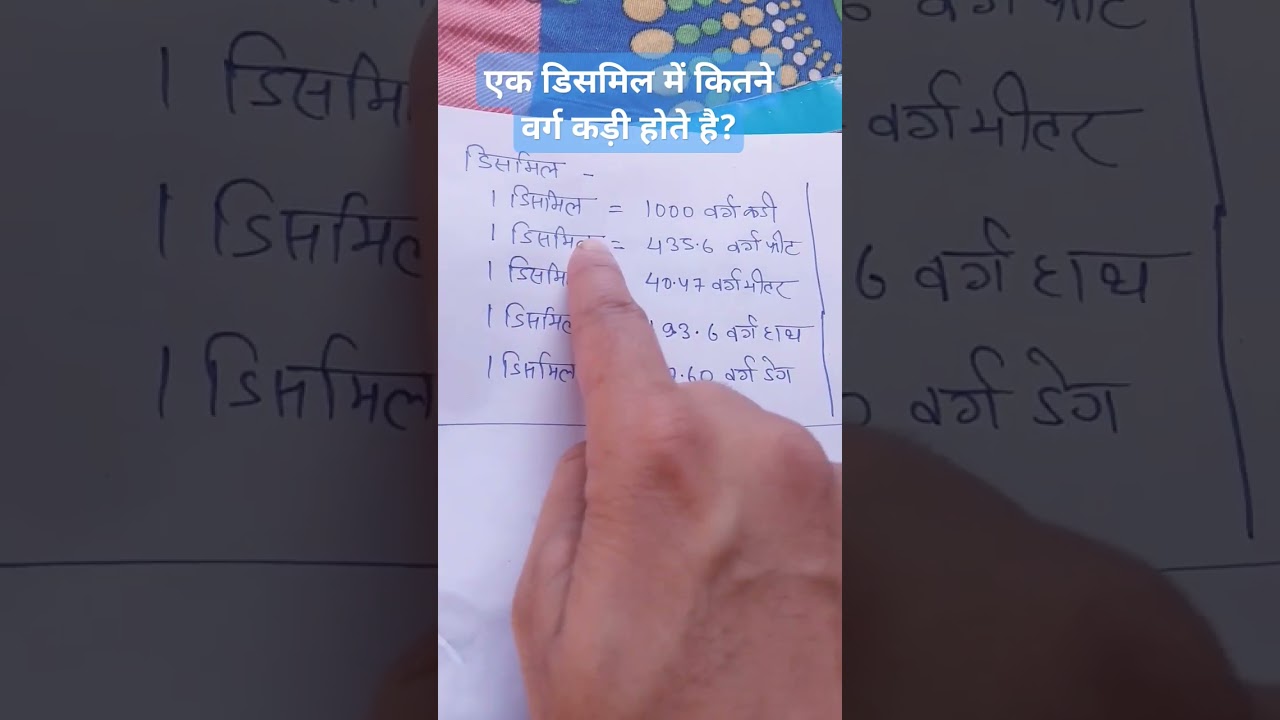 एक डिसमिल में कितने
वर्ग कड़ी होते है?
डिसमिल -
1 डिसमिल = 1000 वर्ग कडी
1 डिसमिल = 435.6 वर्ग फीट
1 डिसमि 40.47 वर्ग मीटर
1 डिसमिल 193.6 वर्ग हाथ
1 डिसमिल .60 वर्ग डेग